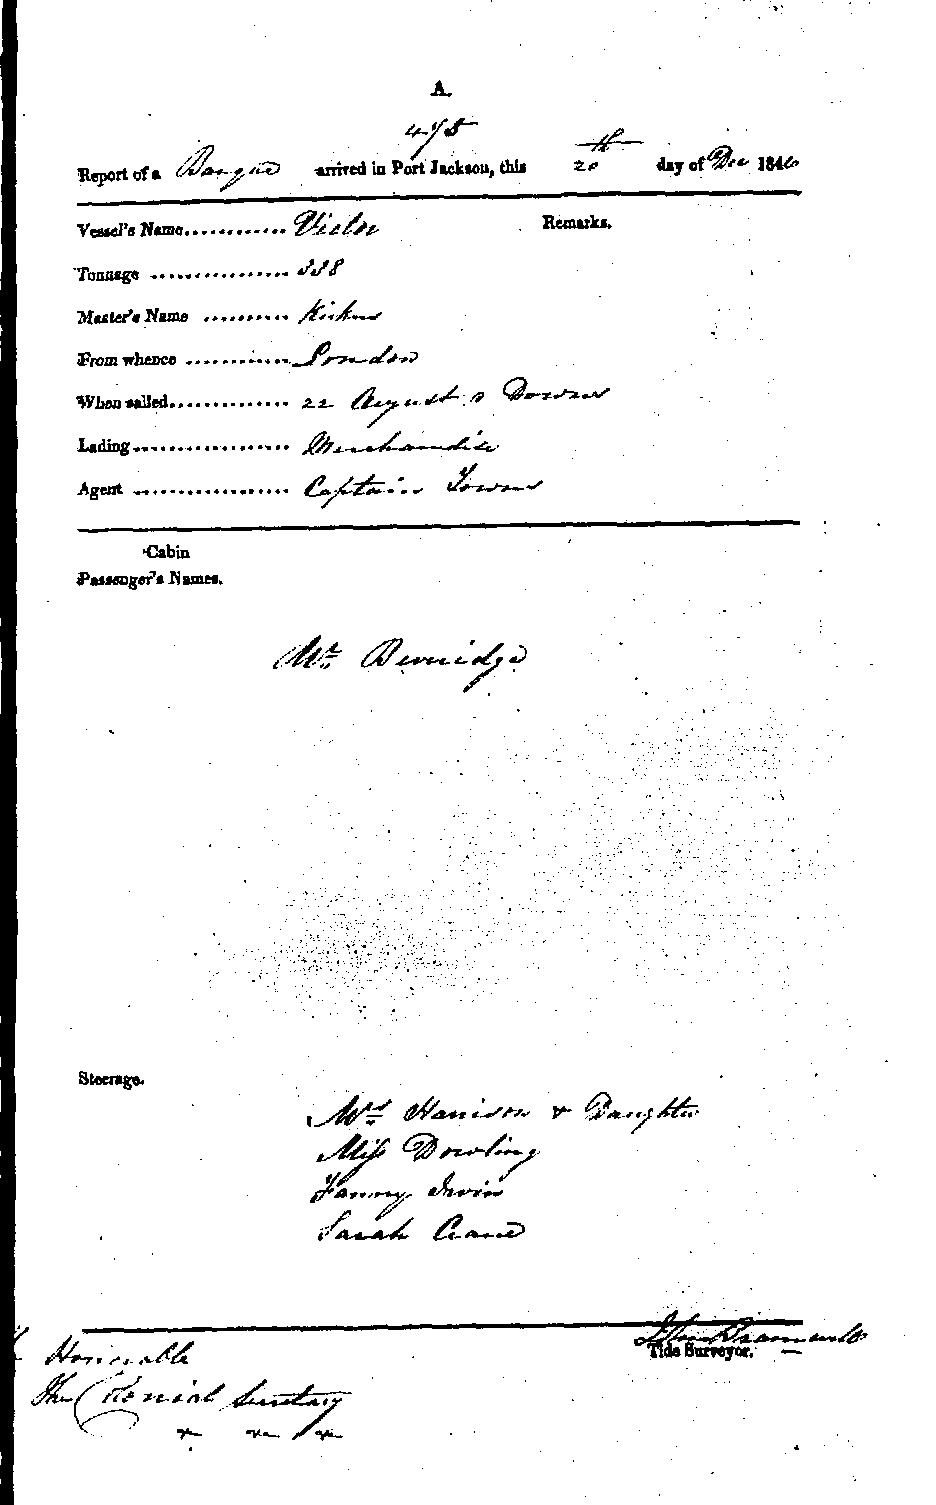 A.
475
Report of a Barque arrived in Port Jackson, this 20th day of Dec 1846
Vessel's Name............ Victor Remarks.
Tonnage ............... 338
Master's Name .........
From whence ............ London
When sailed............. 22 August Downs
Lading................. Merchandise
Agent ................. Captain Towns
Cabin
Passenger's Names.
Mr Berridge
Steerage.
Mrs Harrison & Daughter
Miss Dowling
Fanny Irwin
Sarah Crane
Tide Surveyor.
Honorable
The Colonial Secretary